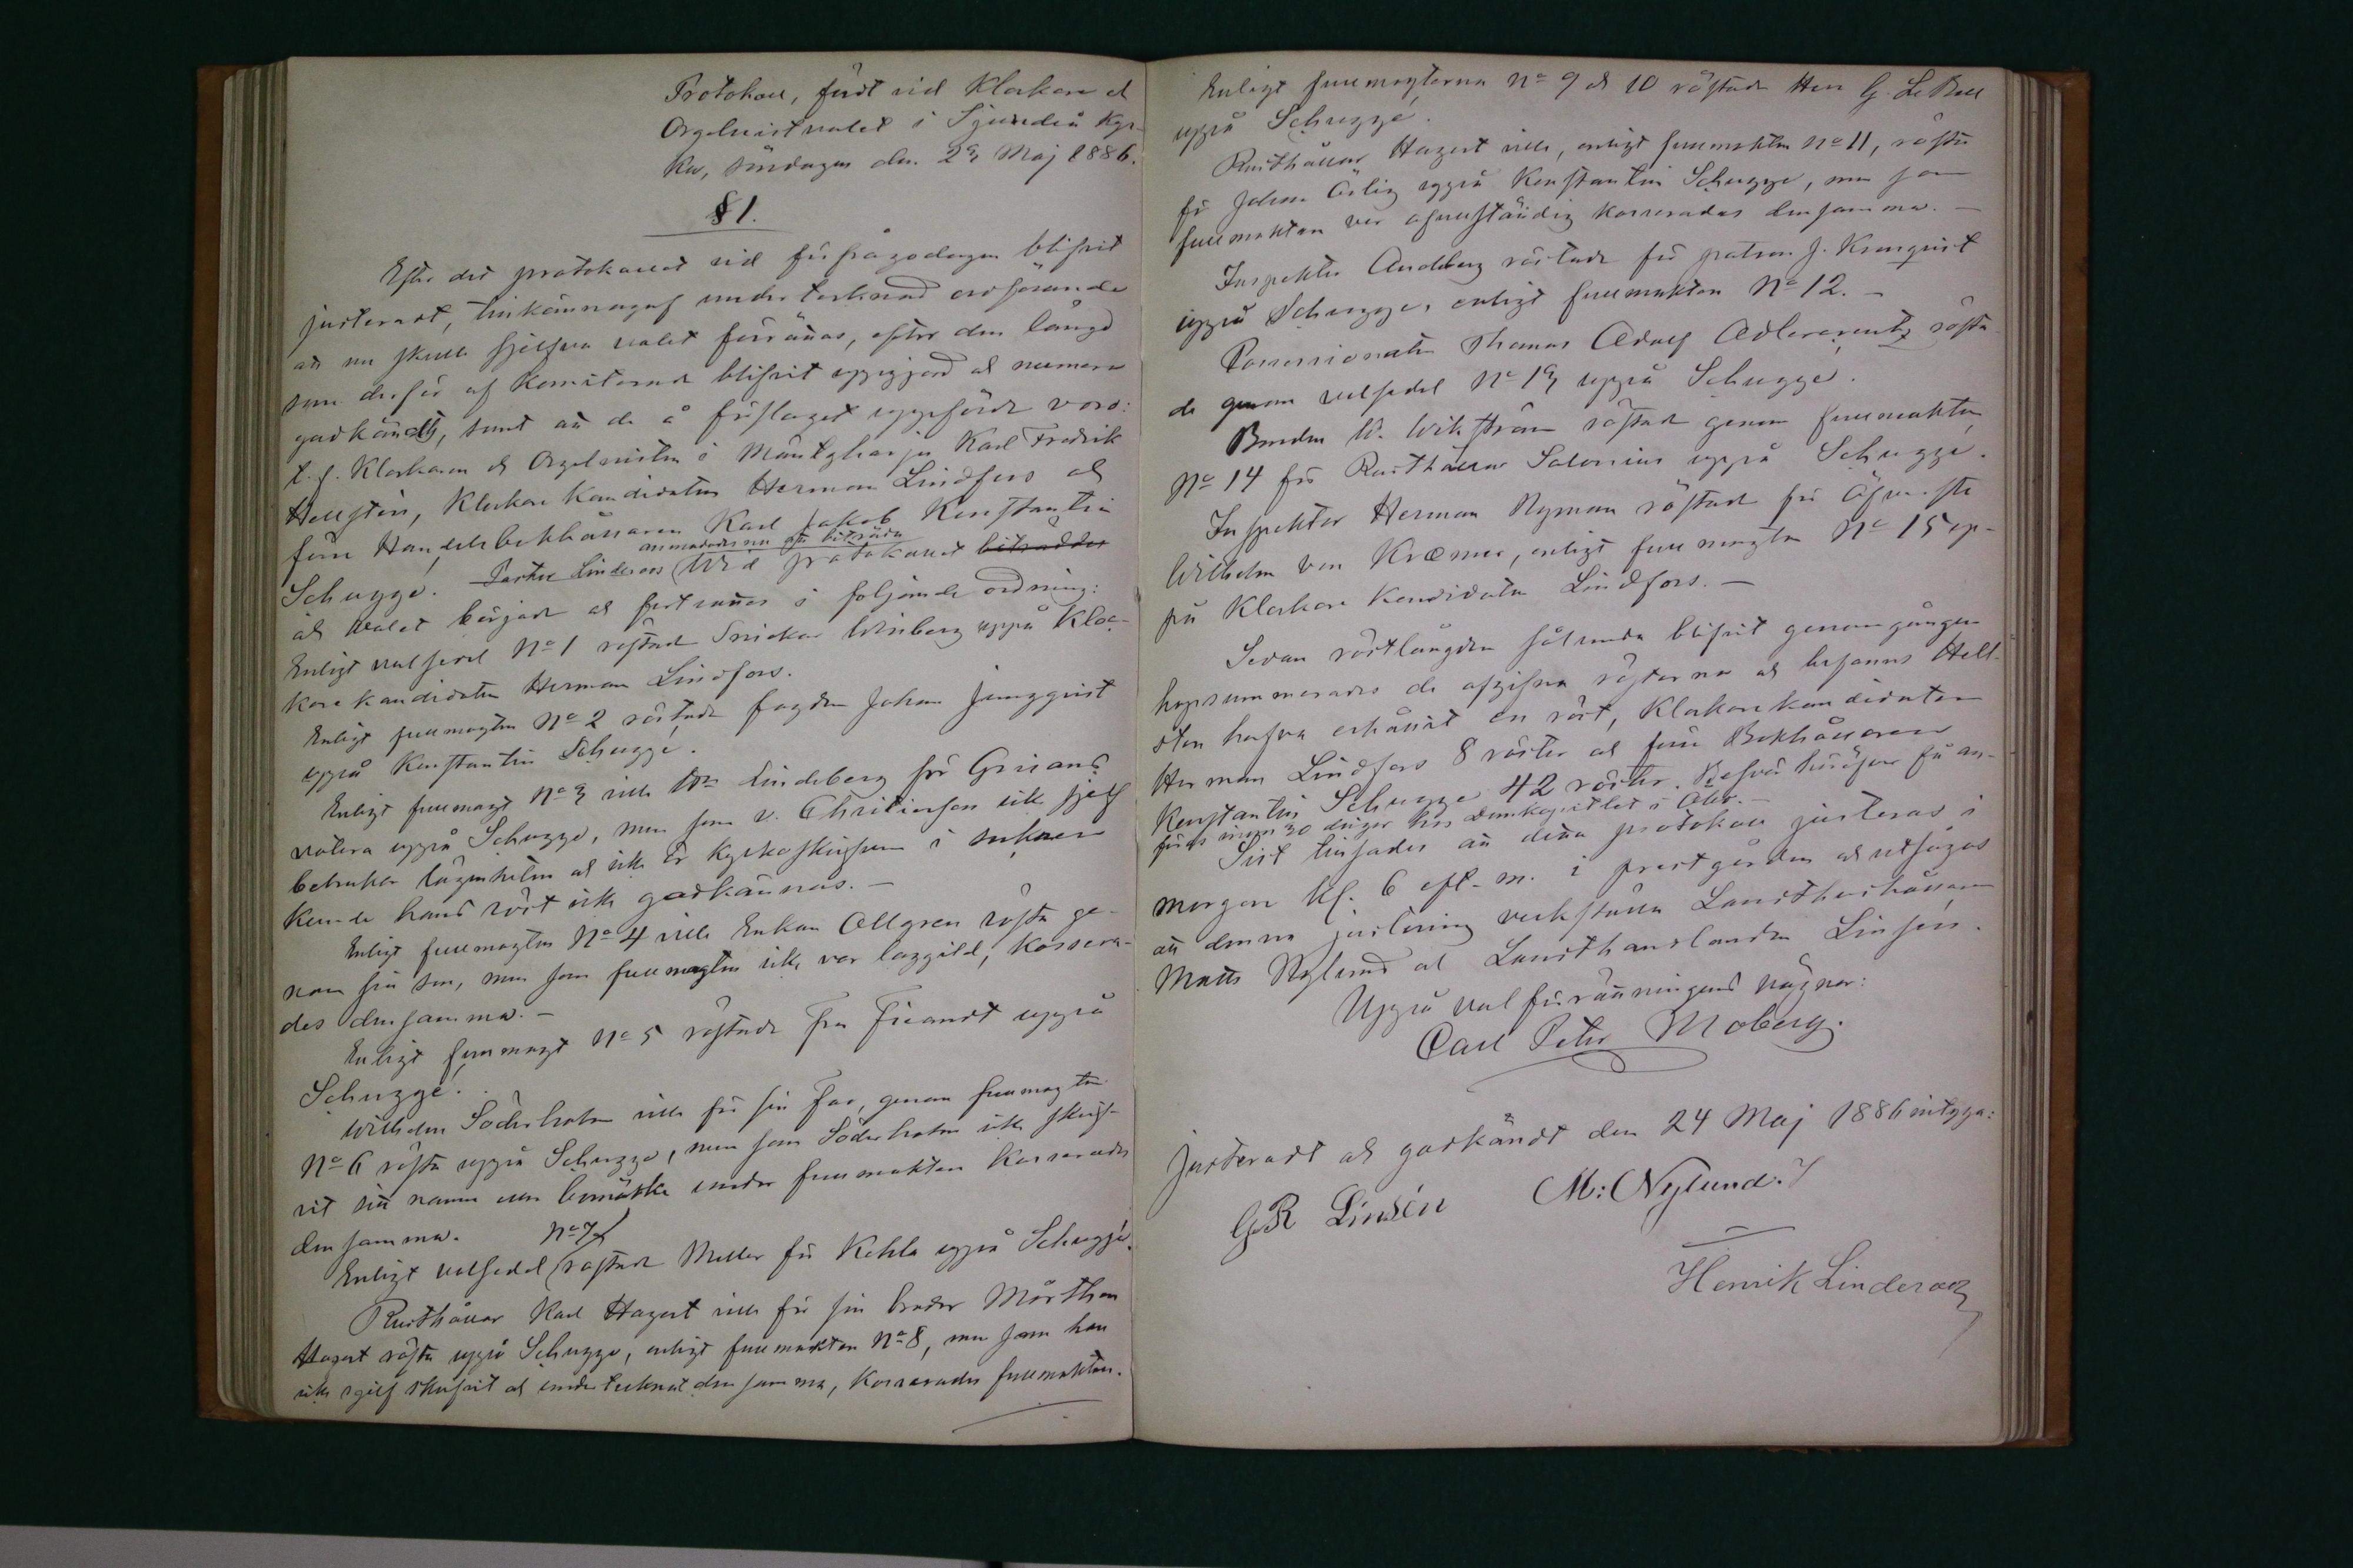 Protokoll, fördt vid Klockare &
Orgelnistvalet i Sjundeå Kyr-
ka, söndagen den 23 Maj 1886.
§ 1.
Efter det protokollet vid förfrågodagen blifvit
justeradt, tillkännagaf undertecknad ordförande
att nu skulle sjelfva valet förrättas, efter den längd
som derför af Komiterade blifvit uppgjord och numera
godkändts, samt att de å förslaget uppförde voro:
t. f. Klockaren & Orgelnisten i Mäntyharju Karl Fredrik
Hellstén, Klockare Kandidaten Herman Lindfors och
förre Handelsbokhållaren Karl Jakob Konstantin
Schugge. Pastor Linderoos anmodades nu att biträda vid protokollet biträddes
och valet började och fortsattes i följande ordning:
Enligt valsedel No 1 röstade Snickar Winberg uppå Kloc-
kare kandidaten Herman Lindfors.
Enligt fullmagten No 2 röstade fogden Johan Ljungqvist
uppå Konstantin Schugge.
Enligt fullmagt No 3 ville Wm Lindeberg för Grisans
votera uppå Schugge, men som v. Christierson icke sjelf
bebruker lägenheten och icke är Kyrkoskrifven i socknen
kunde hans röst icke godkännas. —
Enligt fullmagten No 4 ville Enkan Allgren rösta ge-
nom sin son, men som fullmagten icke var laggild, kassera-
des densamma. —
Enligt fullmagt No 5 röstade Fru Ficandt uppå
Schugge.
Wilhelm Söderholm ville för sin Far, genom fullmagten
No 6 rösta uppå Schugge, men som Söderholm icke skrif-
vit sitt namn eller bomärke under fullmakten kasserades
densamma.
Enligt valsedel No 7 röstade Meller för Kehla uppå Schugge.
Rusthållar Karl Hagert ville för sin broder Mårthen
Hagert rösta uppå Schugge, enligt fullmakten No 8, men som han
icke sjelf skrifvit och undertecknat densamma, kasserades fullmakten.
Enligt fullmagterna No 9 & 10 röstade Herr G. Le Bell
uppå Schugge.
Rusthållar Hagert ville, enligt fullmakten No 11, rösta
för Johan Ärlig uppå Konstantin Schugge, men som
fullmakten var ofullständig kasserades densamma. —
Inspektor Andeberg röstade för patron J. Kronqvist
uppå Schugge, enligt fullmakten No 12. —
Possessionaten Thomas Adolf Adlercreutz rösta
de genom valsedel No 13 uppå Schugge.
Bonden W. Wikström röstade genom fullmakten
No 14 för Rusthållar Salenius uppå Schugge.
Inspektor Herman Nyman röstade för Öfverste
Wilhelm von Kræmer, enligt fullmagten No 15 up-
på Klockare Kandidaten Lindfors. —
Sedan röstlängden sålunda blifvit genomgången
hopsummerades de afgifna rösterna och befanns Hell-
sten hafva erhållit en röst, Klockarekandidaten
Herman Lindfors 8 röster och förre Bokhållaren
Konstantin Schugge 42 röster. Besvär häröfver få an-
föras inom 30 dagar hos Domkapitlet i Åbo. —
Sist tillsades att detta protokoll justeras i
morgon kl. 6 eft. m. i prestgården och utsågos
att denna justering verkställa Lanthushållaren
Matts Nylund och Landthandlanden Linsén.
Uppå valförrättningens vägnar:
Carl Peter Moberg.
Justeradt och godkändt den 24 Maj 1886 intyga:
GR Linsén M: Nylund.
Henrik Linderoos